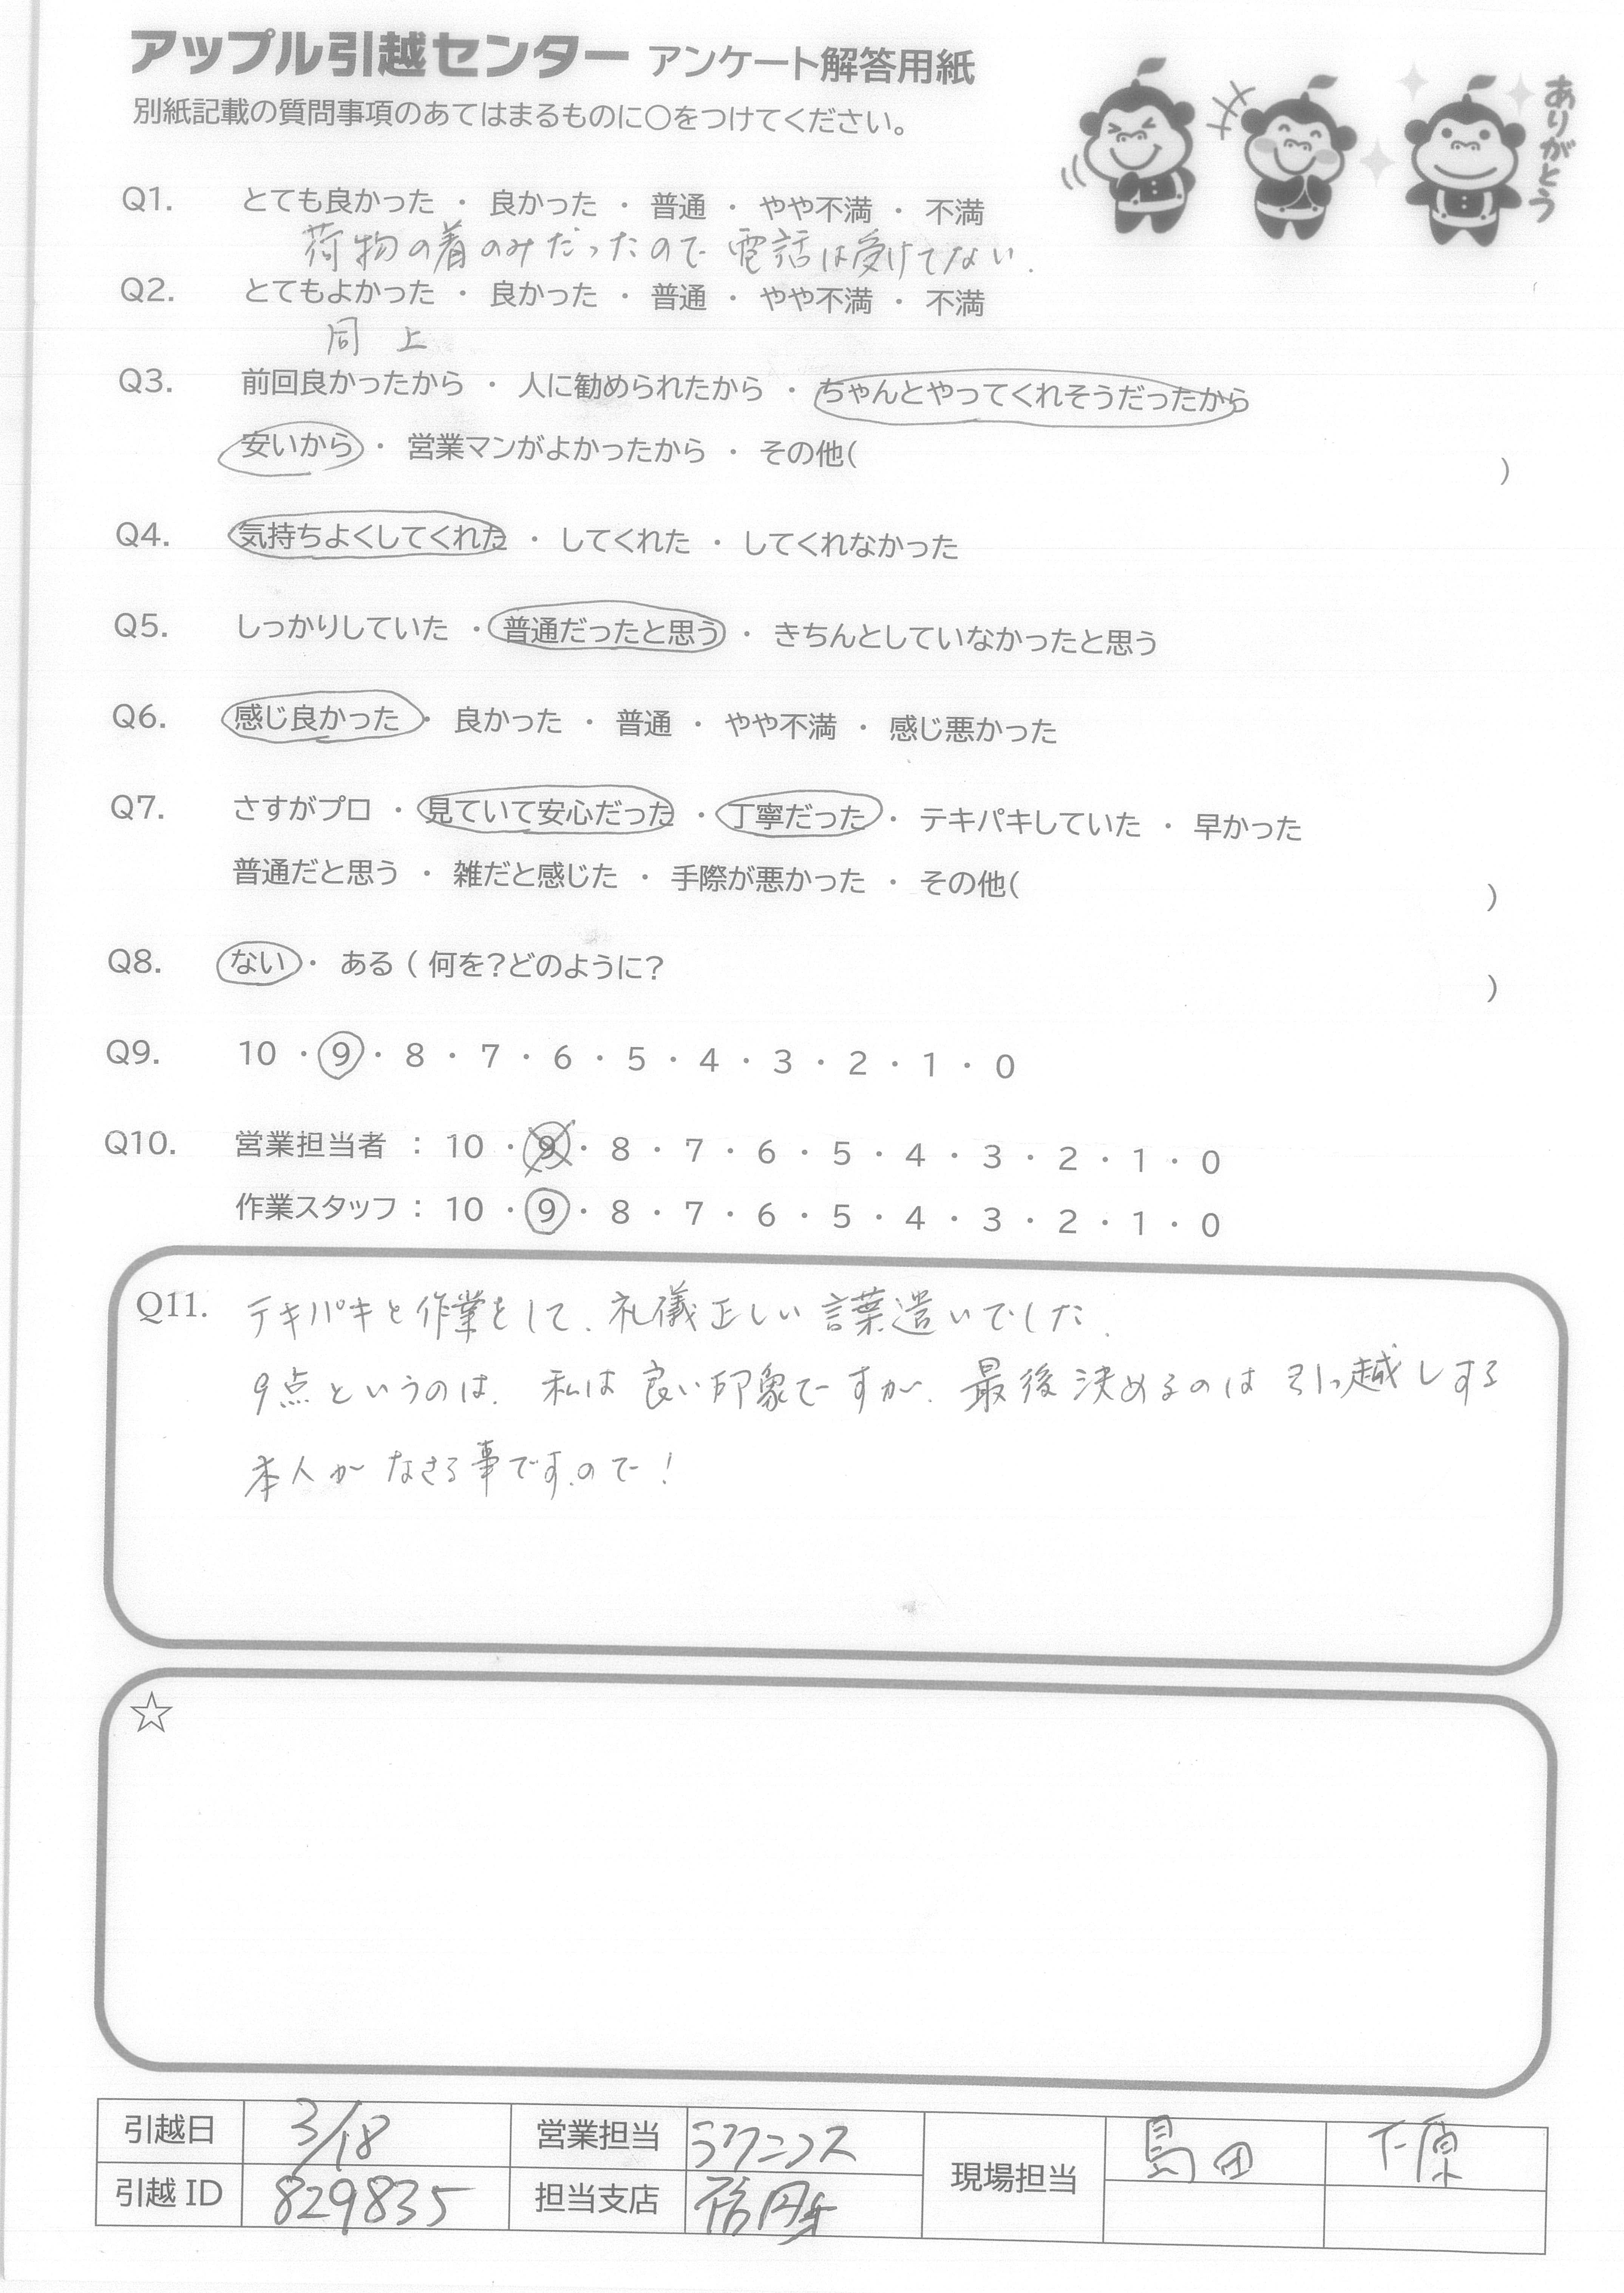 アップル引越センター アンケート解答用紙
ありがとう
別紙記載の質問事項のあてはまるものに○をつけてください。
Q1. とても良かった ・ 良かった ・ 普通 ・ やや不満 ・ 不満
荷物の着のみだったので 電話は受けてない.
Q2. とてもよかった ・ 良かった ・ 普通 ・ やや不満 ・ 不満
同 上
Q3. 前回良かったから ・ 人に勧められたから ・ ちゃんとやってくれそうだったから
安いから ・ 営業マンがよかったから ・ その他( )
Q4. 気持ちよくしてくれた ・ してくれた ・ してくれなかった
Q5. しっかりしていた ・ 普通だったと思う ・ きちんとしていなかったと思う
Q6. 感じ良かった ・ 良かった ・ 普通 ・ やや不満 ・ 感じ悪かった
Q7. さすがプロ ・ 見ていて安心だった ・ 丁寧だった ・ テキパキしていた ・ 早かった
普通だと思う ・ 雑だと感じた ・ 手際が悪かった ・ その他( )
Q8. ない ・ ある ( 何を?どのように? )
Q9. 10 ・ 9 ・ 8 ・ 7 ・ 6 ・ 5 ・ 4 ・ 3 ・ 2 ・ 1 ・ 0
Q10. 営業担当者 : 10 ・ 9 ・ 8 ・ 7 ・ 6 ・ 5 ・ 4 ・ 3 ・ 2 ・ 1 ・ 0
作業スタッフ : 10 ・ 9 ・ 8 ・ 7 ・ 6 ・ 5 ・ 4 ・ 3 ・ 2 ・ 1 ・ 0
Q11. テキパキと作業をして、礼儀正しい言葉遣いでした.
9点というのは、私は良い印象ですが、最後決めるのは引っ越しする
本人がなさる事ですので!
☆
引越日 3/18 営業担当 現場担当 島田 下原
引越 ID 829835 担当支店